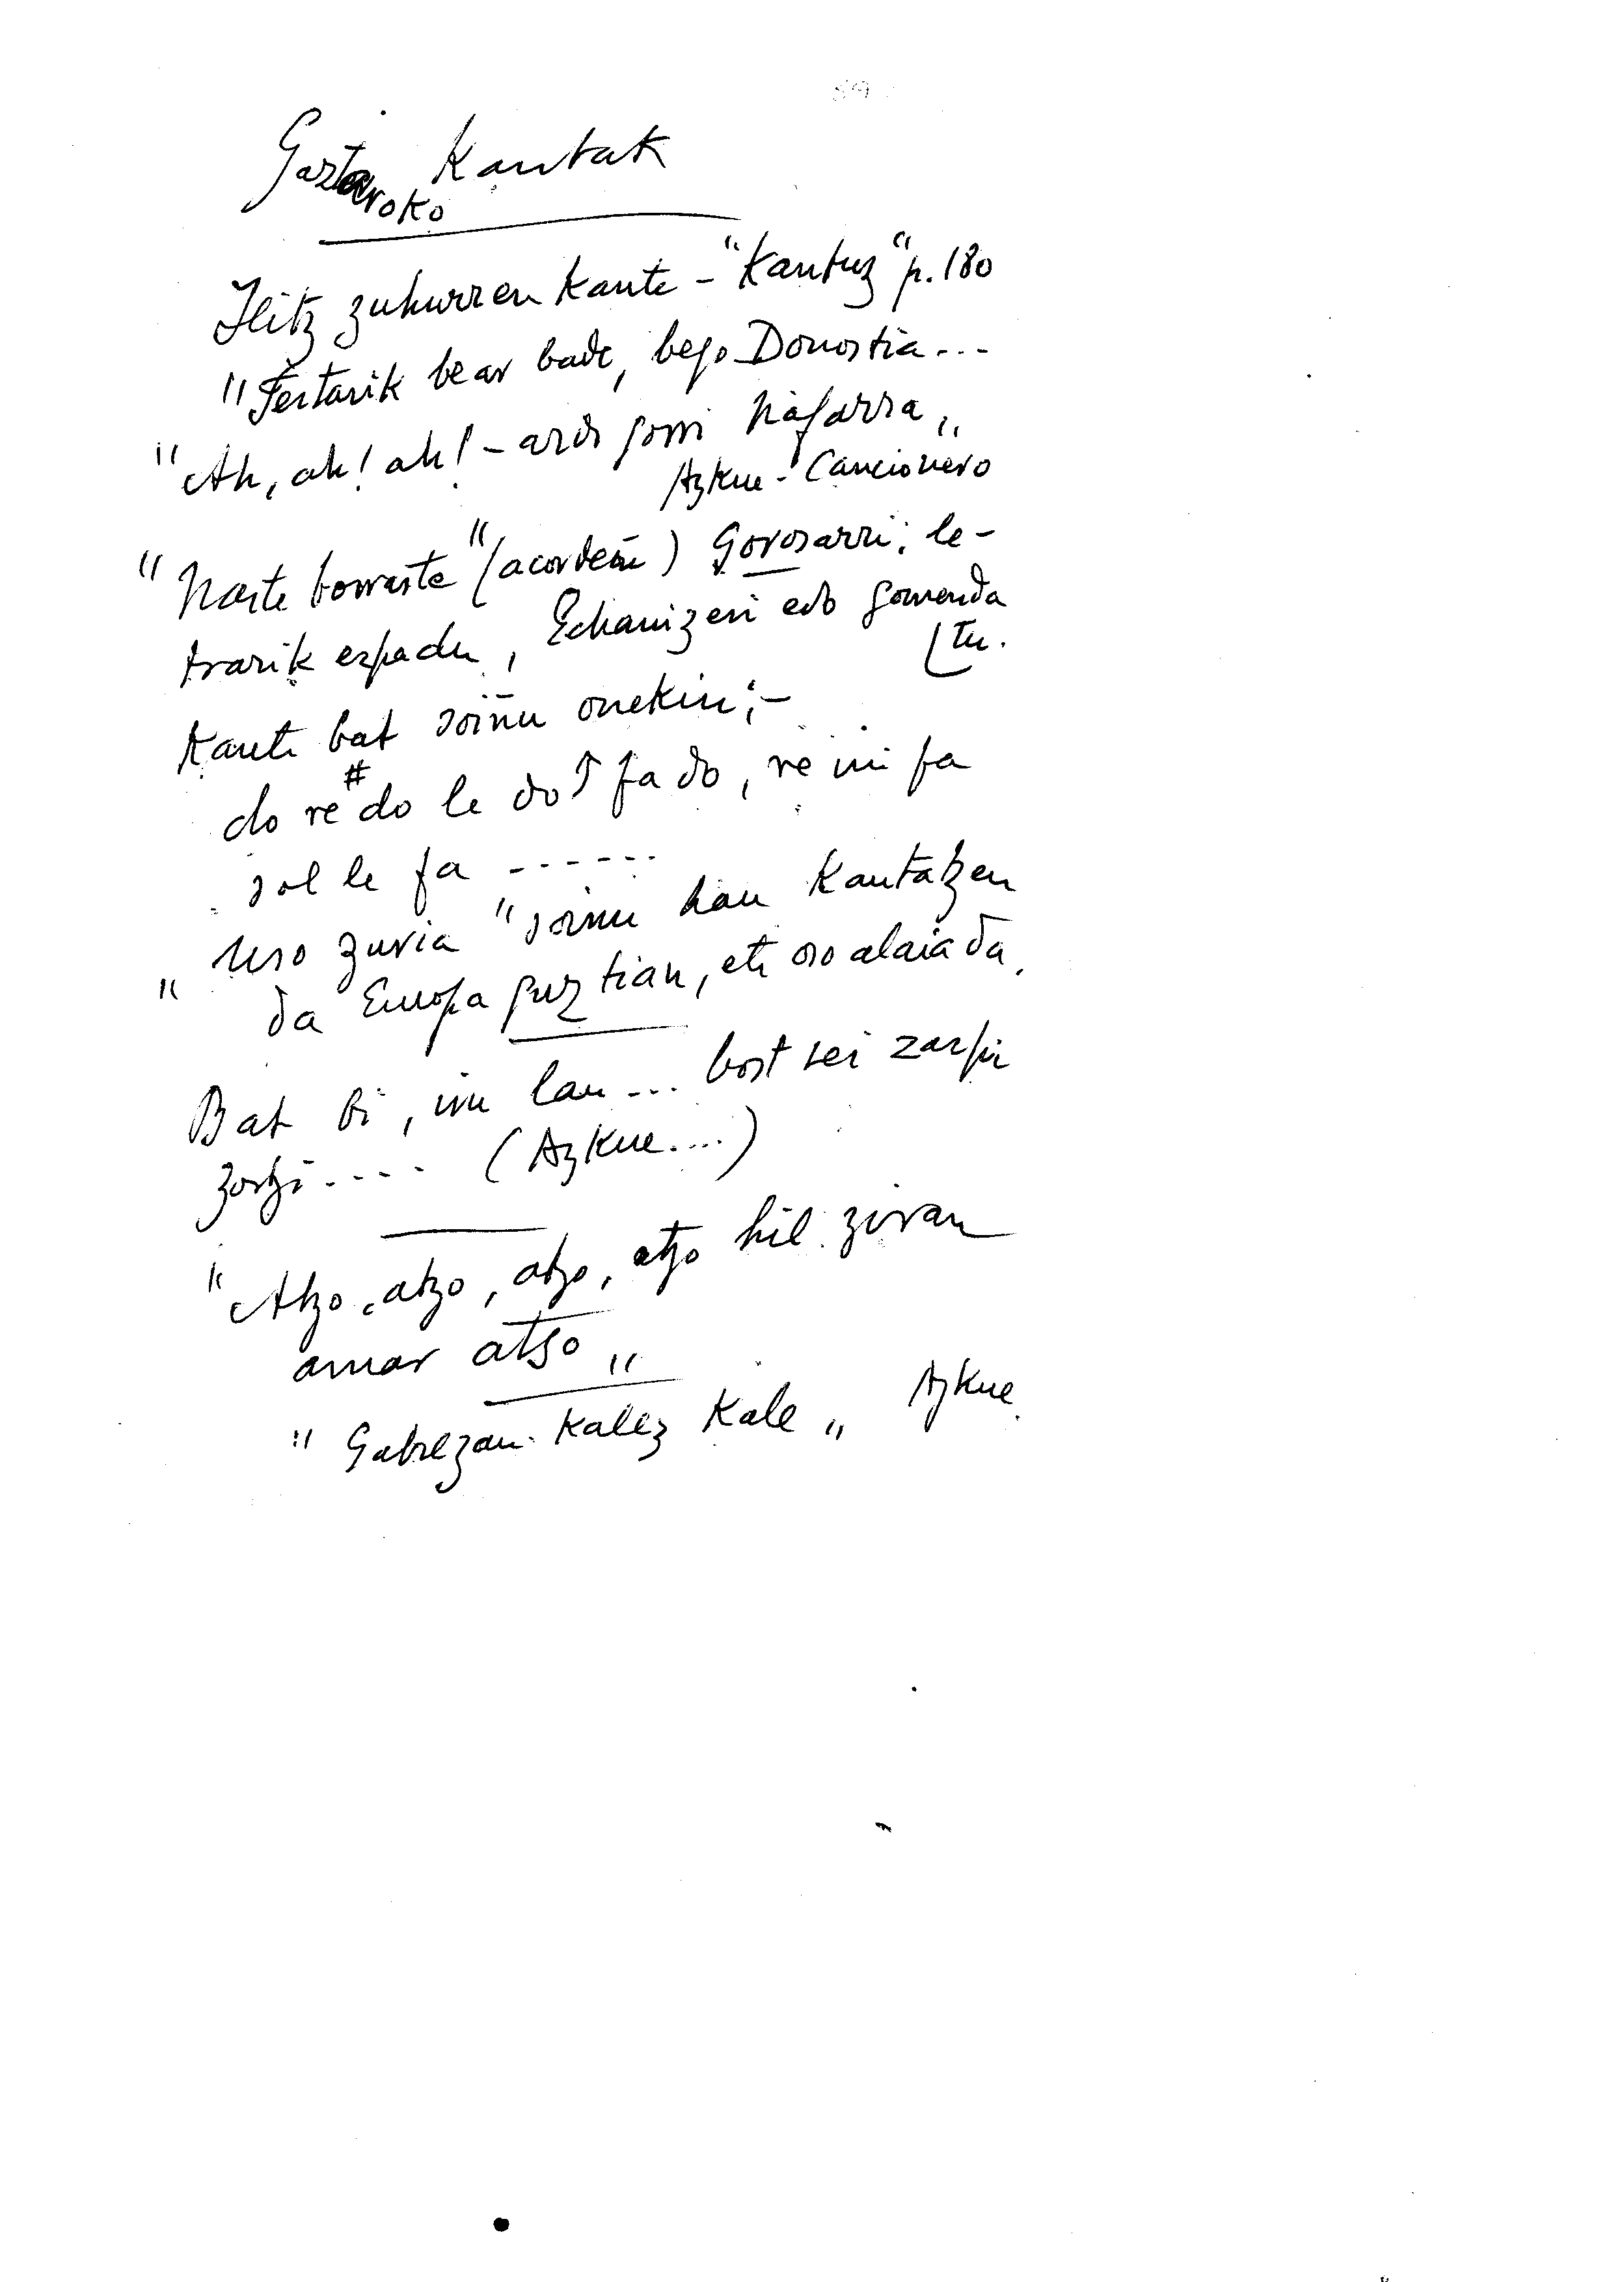 Gaztaroko Kantak
Hitz zuhurren kanta - "Kantuz" p. 180
"Festarik bear bada, bego Donostia...
"Ah, ah! ah! - ardo gorri Nafarra"
Azkue - Cancionero
"Naste borraste" (acordeoi) Gorosarri; le-
trarik ezpadu, Echanizeri edo gomenda
tu.
Kanta bat soiñu onekin; -
do re # do la do fa do, re mi fa
sol la fa ------
"Uso zuria" soinu hau kantatzen
da Europa guztian, eta oso alaia da.
Bat bi, iru lau ... bost sei zazpi
zortzi .... (Azkue....)
"Atzo, atzo, atzo, atzo hil ziran
amar atso"
"Gabrezan kalez kale" Azkue